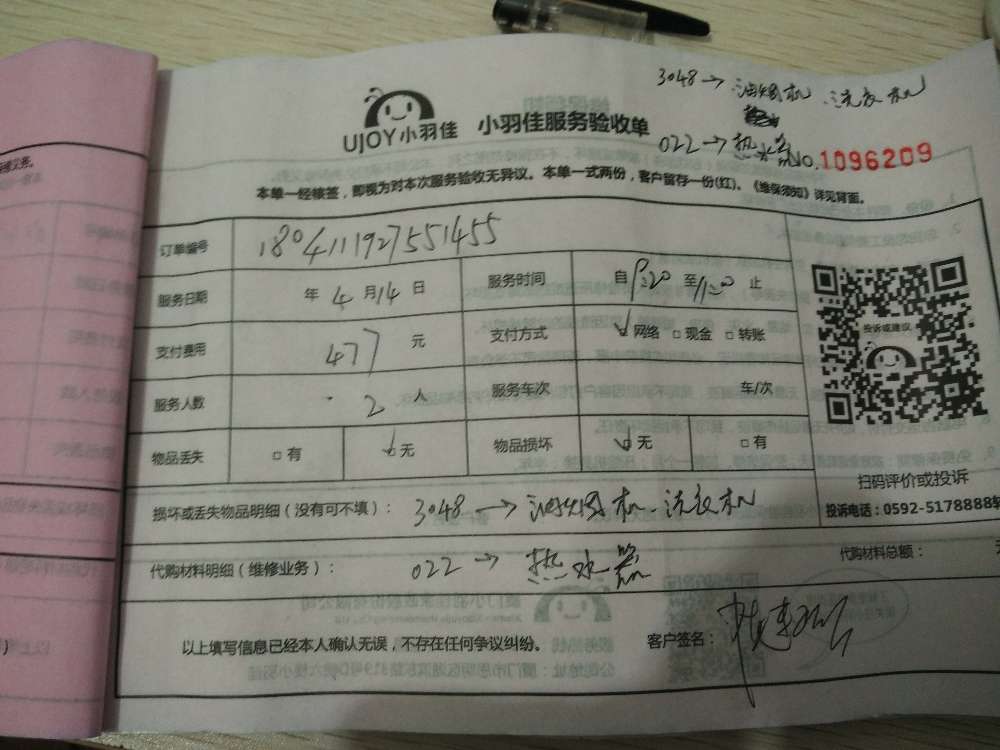 3048→油烟机、洗衣机
UJOY小羽佳 小羽佳服务验收单
022→热水器
No.1096209
本单一经核签，即视为对本次服务验收无异议。本单一式两份，客户留存一份(红)。《维保须知》详见背面。
订单编号 1804111927551455
服务日期 年 4 月 14 日 服务时间 自 至 止
支付费用 477 元 支付方式 ☑网络 □现金 □转账
投诉或建议
服务人数 2 人 服务车次 车/次
物品丢失 □有 ☑无 物品损坏 ☑无 □有
扫码评价或投诉
损坏或丢失物品明细（没有可不填）： 3048→油烟机、洗衣机
投诉电话：0592-5178888转
代购材料明细（维修业务）： 022→热水器
代购材料总额：
以上填写信息已经本人确认无误，不存在任何争议纠纷。 客户签名：